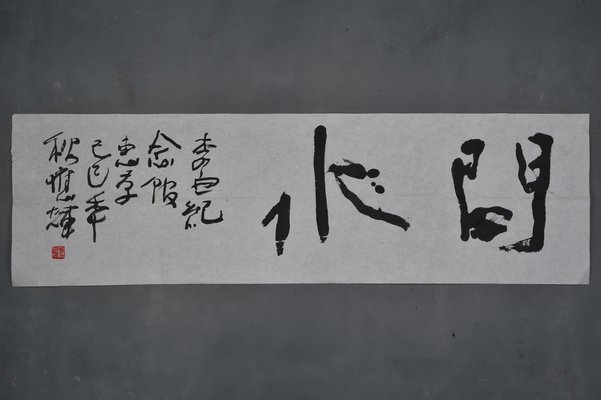 問水
李白纪
念馆
惠存
己巳年
秋